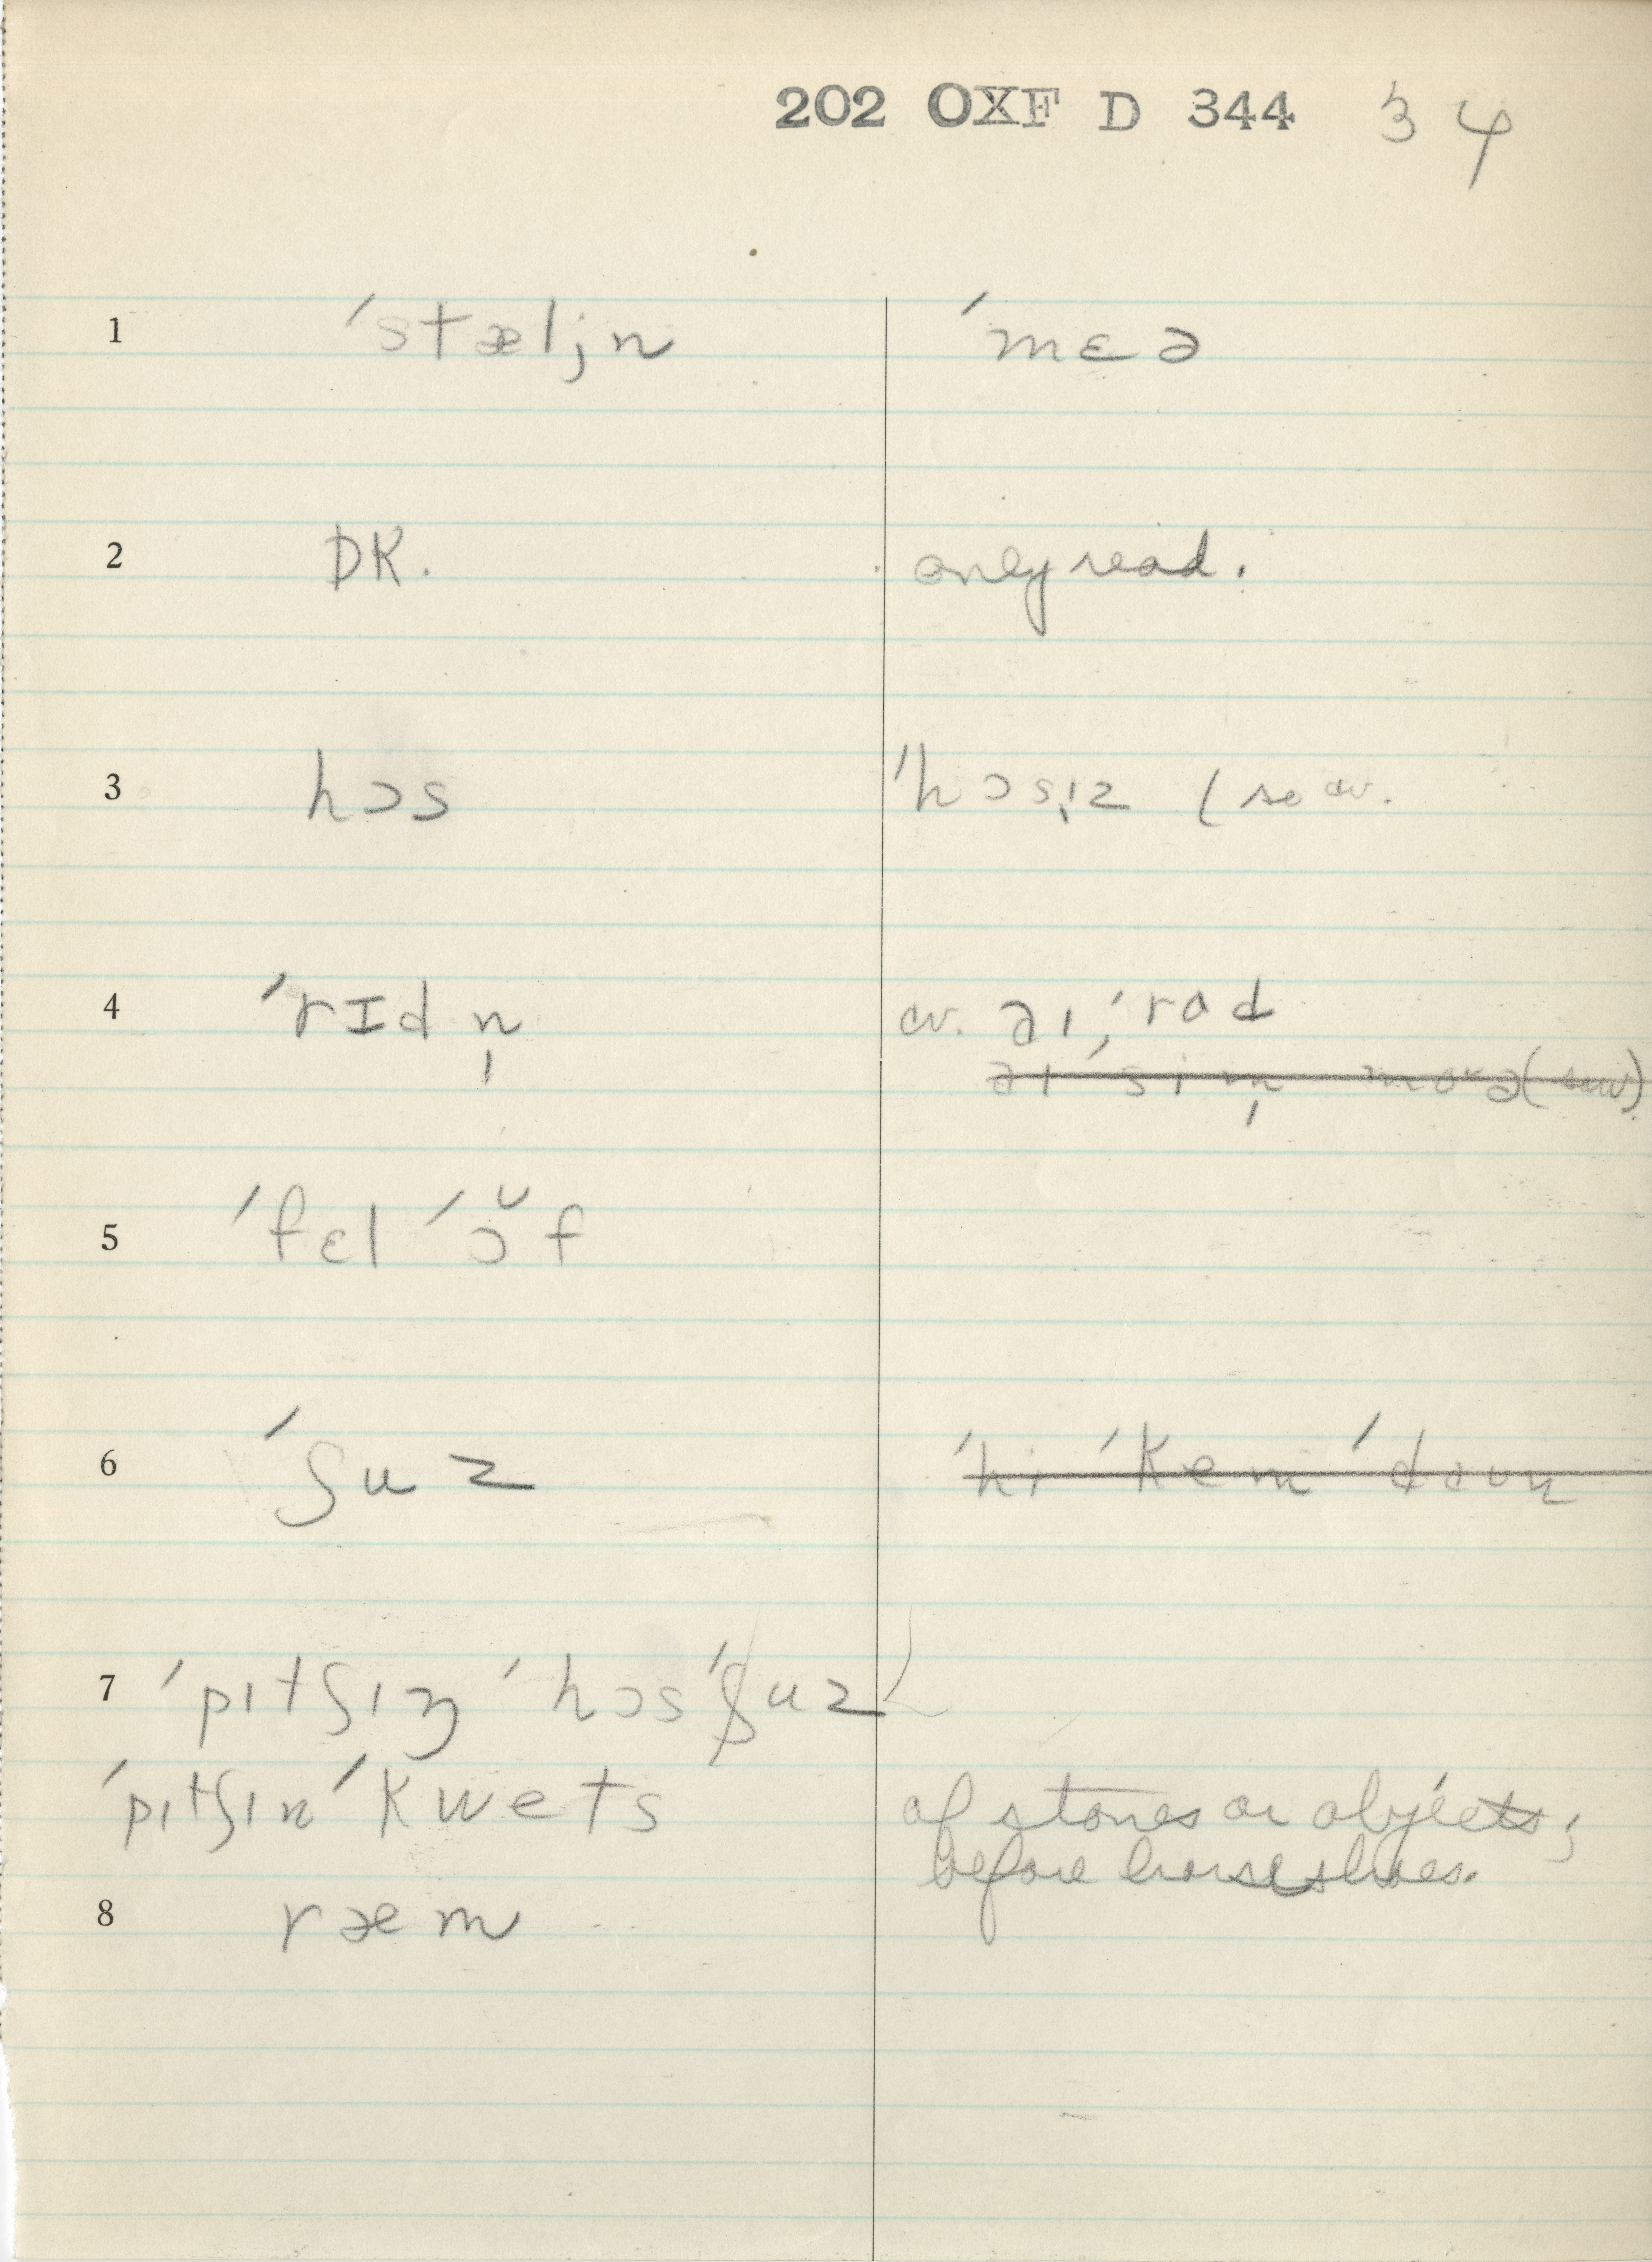 202 OXF D 344 34
1 ˈstæljn ˈmɛə
2 DK. only read.
3 hɔs ˈhɔsɪz (so cv.
4 ˈrɪdn̩ cv. əɪ ˈrad
5 ˈfɛl ˈɔ̆f
6 ˈʃuz ˈhi ˈkem ˈdaʊn
7 ˈpɪtʃɪŋ ˈhɔsˈʃuz
ˈpɪtʃɪn ˈkwets of stones or objects;
before horseshoes.
8 ræm